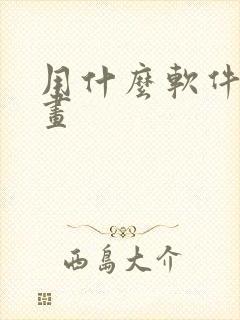 用什麼軟件
畫
西島大介